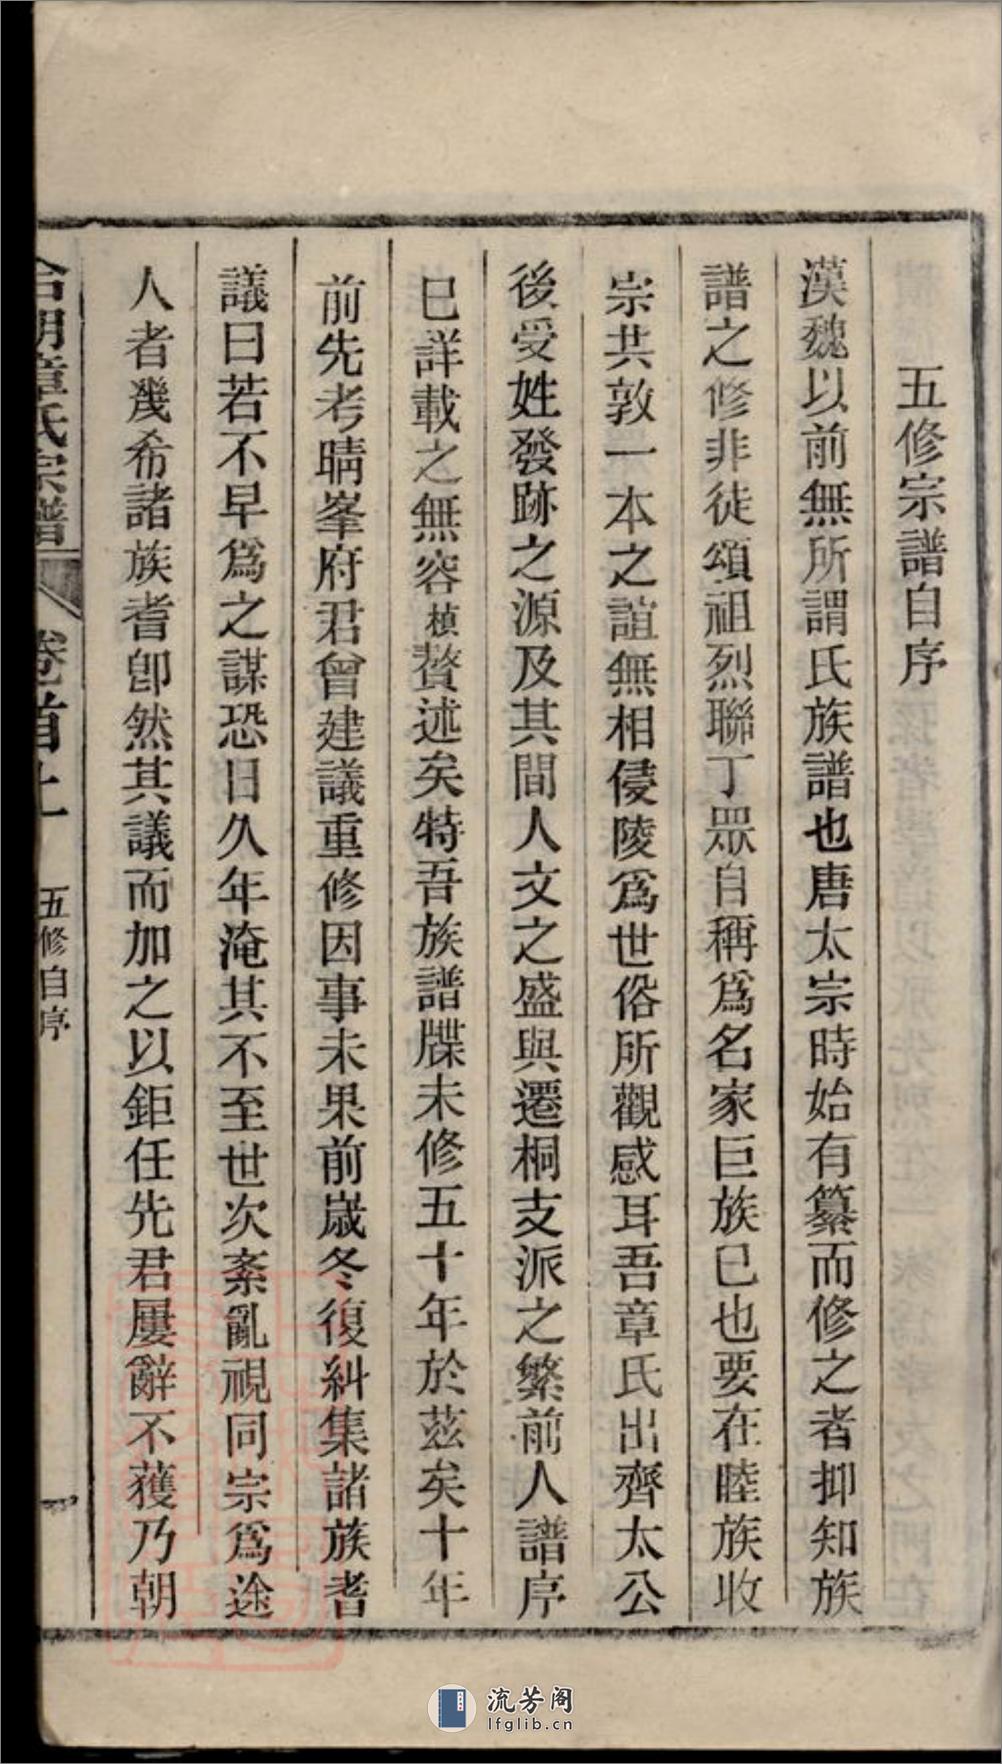 五修宗譜自序
漢魏以前無所謂氏族譜也唐太宗時始有纂而修之者抑知族
譜之修非徒頌祖烈聯丁眾自稱爲名家巨族已也要在睦族收
宗共敦一本之誼無相侵陵爲世俗所觀感耳吾章氏出齊太公
後受姓發跡之源及其間人文之盛與遷桐支派之繁前人譜序
已詳載之無容楨贅述矣特吾族譜牒未修五十年於茲矣十年
前先考晴峯府君曾建議重修因事未果前歲冬復糾集諸族耆
議曰若不早爲之謀恐日久年淹其不至世次紊亂視同宗爲途
人者幾希諸族耆卽然其議而加之以鉅任先君屢辭不獲乃朝
章氏宗譜
卷首上
五修自序
流芳阁
lfglib.cn